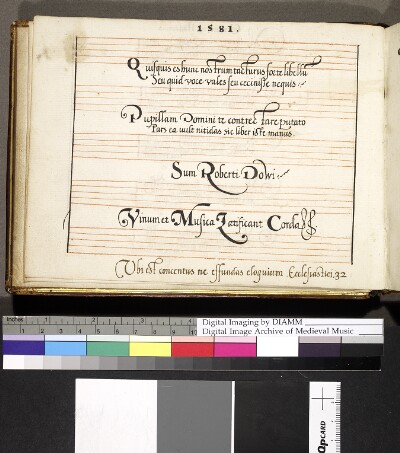 1581.
Quisquis es hunc nostrum tacturus forte libellū
Seu quid voce vales seu cecinisse nequis.
Pupillam Domini te contrectare putato
Pars ea vult nitidas sic liber iste manus.
Sum Roberti Dowi
Vinum et Musica Lætificant Corda
Ubi est concentus ne effundas eloquium Ecclesiastici. 32
inches 1 2 3 4 5 6 7 8
cm 1 2 3 4 5 6 7 8 9 10
Digital Imaging by DIAMM
Digital Image Archive of Medieval Music
QPCARD